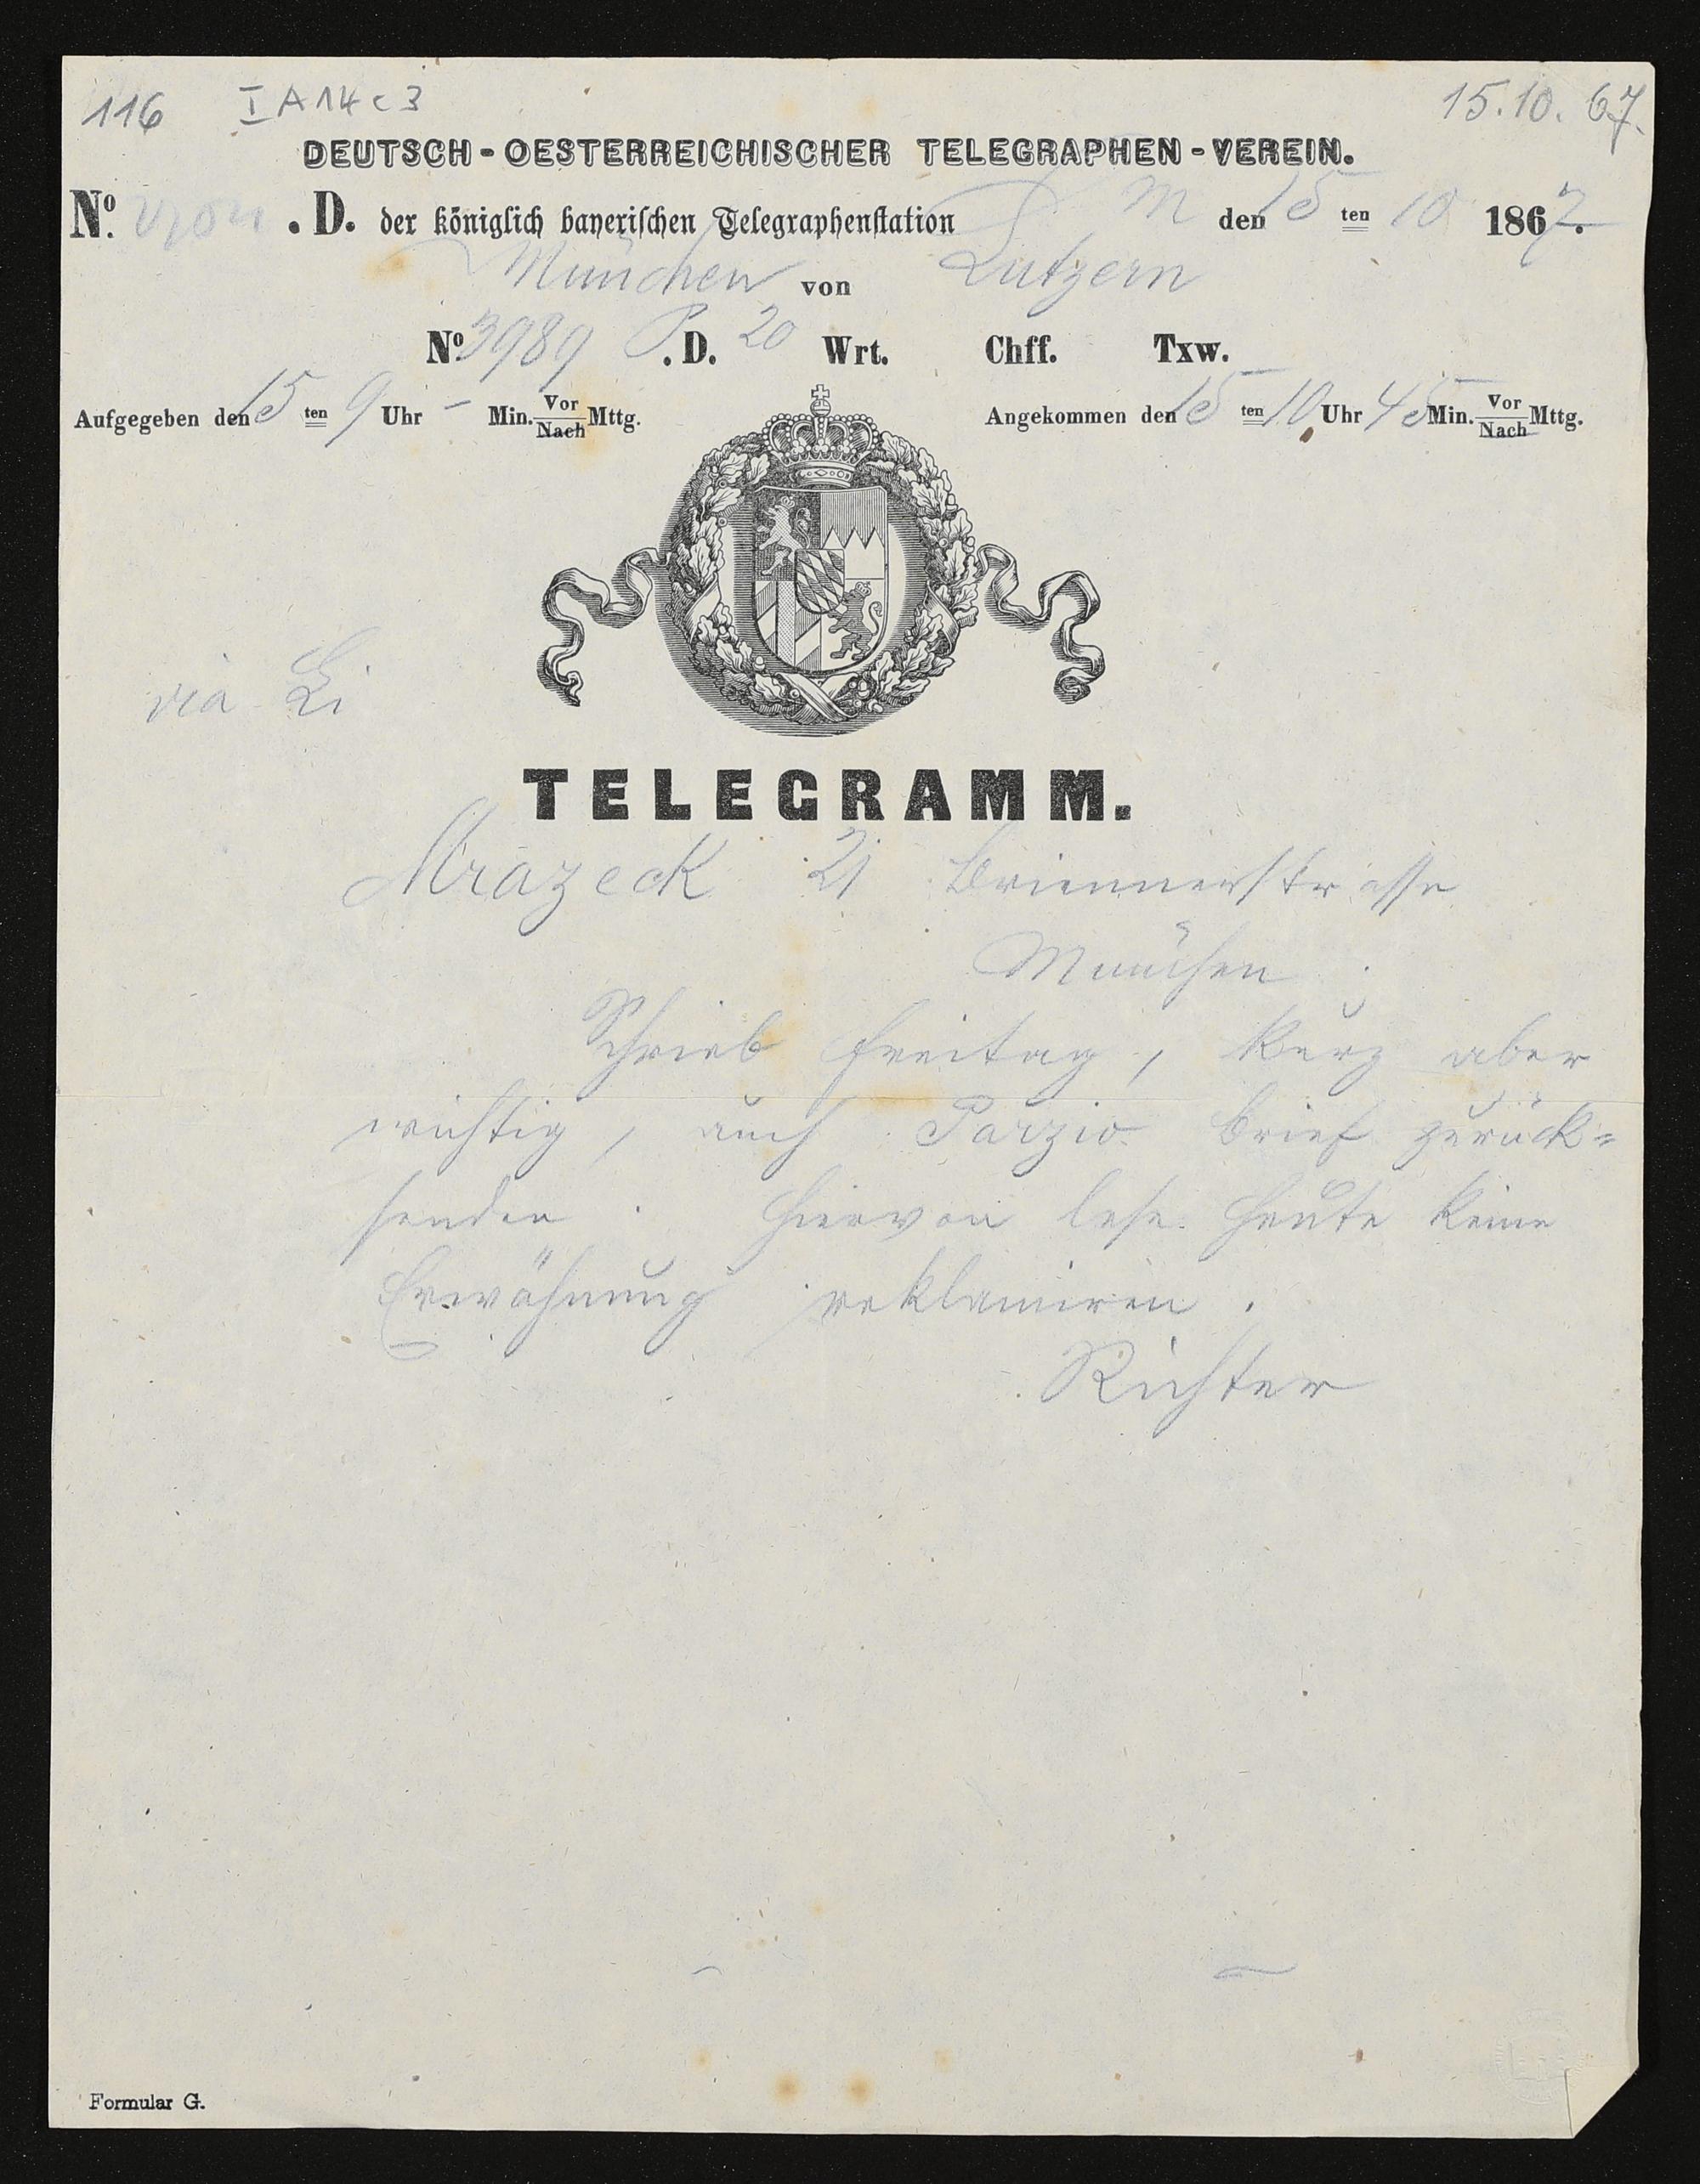 116 I A 14 c 3 15.10.67.
DEUTSCH-OESTERREICHISCHER TELEGRAPHEN-VEREIN.
No. . D. der königlich bayerischen Telegraphenstation M den 15 ten 10 1867.
München von Lutzern
No 3989 P. D. 20 Wrt. Chff. Txw.
Aufgegeben den 15 ten 9 Uhr - Min. Vor/Nach Mttg. Angekommen den 15 ten 10 Uhr 45 Min. Vor/Nach Mttg.
via Li
TELEGRAMM.
Mrazeck 21 Briennerstrasse
München
Schrieb Freitag, kurz aber
wichtig, auch Porzio Brief zurück=
senden. Hiervon lese heute keine
Erwähnung reklamiren.
Richter
Formular G.